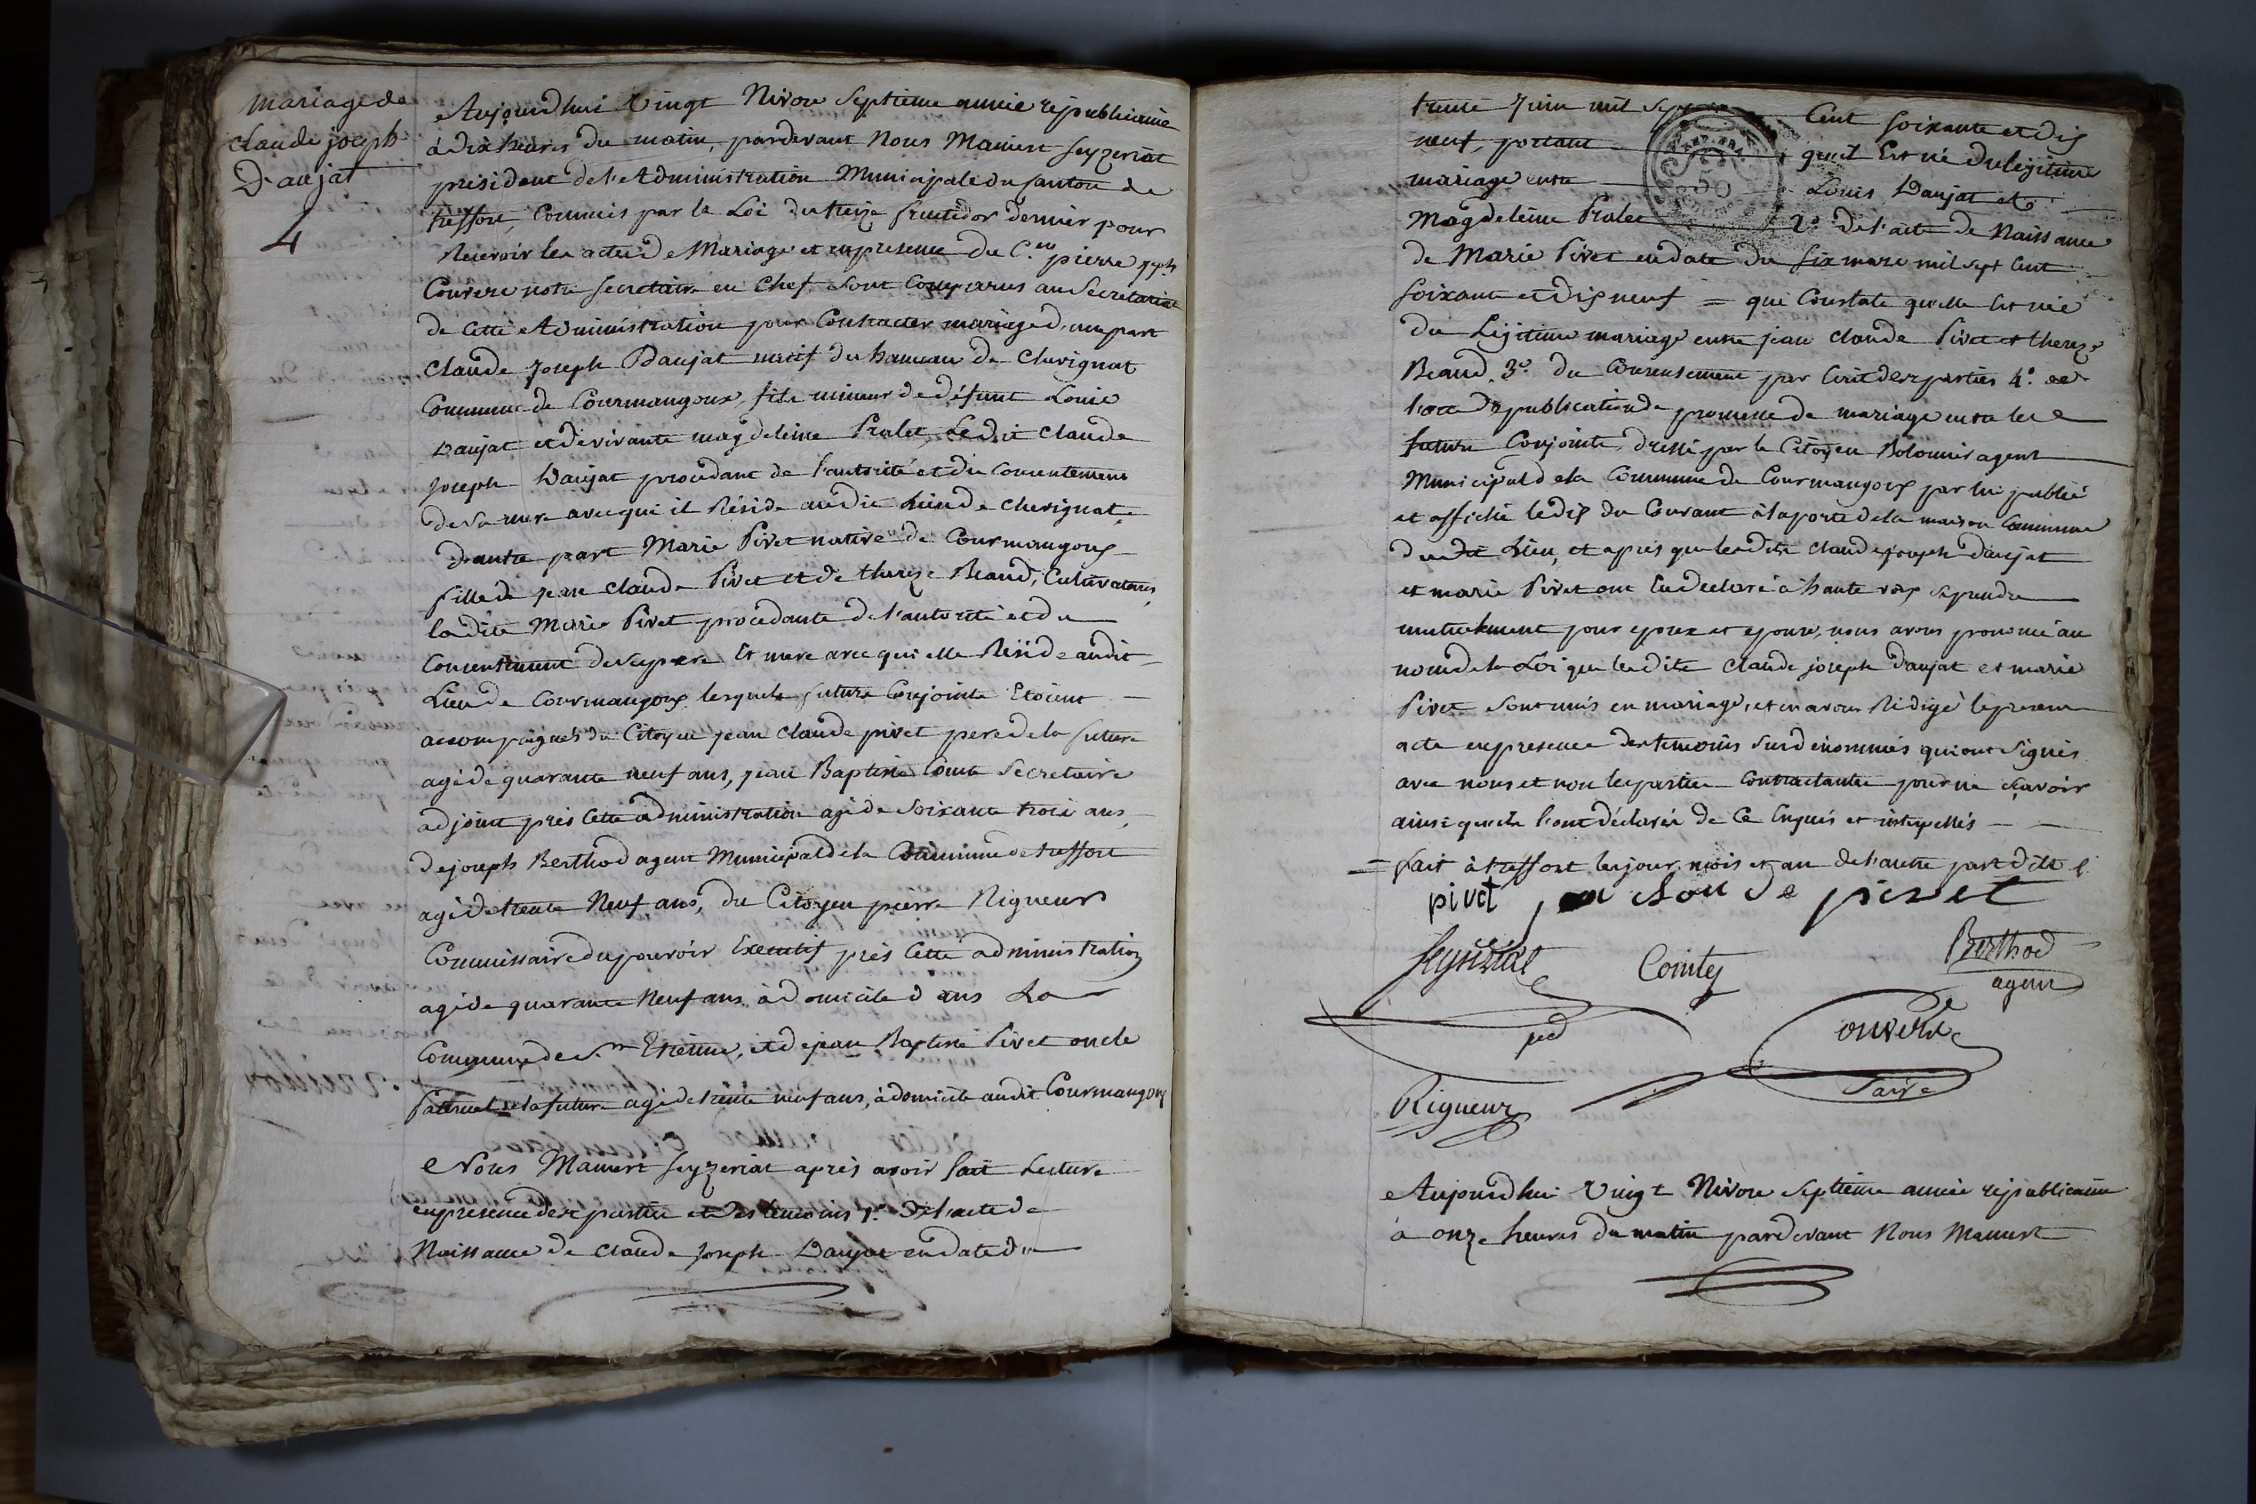 mariage de
claude joseph
Daujat
4
Aujourdhui vingt Nivose septieme année republicaine
à dix heures du matin, pardevant Nous Mamert Seyzeriat
président de l'Administration Municipale du Canton de
treffort, Commis par la Loi du treize fructidor dernier pour
Recevoir les actes de Mariage et en presence du C.en pierre jph
Couvere notre secretaire en Chef sont Comparus au Secretariat
de Cette Administration pour Contracter mariage d'une part
Claude Joseph Daujat natif du hameau de Chevignat
Commune de Courmangoux, fils mineur de défunt Louis
Daujat et de vivante magdeleine Pralet Ledit Claude
Joseph Daujat procedant de l'autorité et du Consentement
de sa mere avec qui il Réside audit Lieu de Chevignat,
D'autre part Marie Pivet native de Courmangoux
fille de Jean Claude Pivet et de thereze Beaud, Cultivateurs,
ladite Marie Pivet procedante de l'autorité et du
Consentement de ses pere Et mere avec qui elle Réside audit
Lieu de Courmangoux lesquels futurs Conjoints Etoient
accompagnés du Citoyen jean Claude pivet pere de la future
agé de quarante neuf ans, jean Baptiste Comte Secretaire
adjoint près Cette administration agé de soixante trois ans,
de joseph Berthod agent Municipal de la Commune de treffort
agé de trente Neuf ans, du Citoyen pierre Rigueur
Commissaire du pouvoir Executif près Cette administration
agé de quarante Neuf ans à domicile dans La
Commune de S.nt Etienne, et de jean Baptiste Pivet oncle
Paternel de la future agé de trente neuf ans, à domicile audit Courmangoux
Nous Mamert Seyzeriat après avoir fait Lecture
en presence des parties et des témoins 1.o De l'acte de
Naissance de Claude Joseph Daujat en date du
trente Juin mil sept Cent soixante et dix
neuf, portant qu'il Est né du légitime
mariage entre Louis Daujat et
Magdeleine Pralet 2.o de l'acte de Naissance
de Marie Pivet en date du six mars mil sept Cent
soixante et dix neuf = qui Constate qu'elle Est née
du Légitime mariage entre jean Claude Pivet et thereze
Beaud. 3.o du Consentement par Ecrit des parties 4.o de
l'acte de publication de promesse de mariage entre les
futurs Conjoints, dressé par le Citoyen Bolomier agent
Municipal de la Commune de Courmangoux par lui publié
et affiché le dix du Courant à la porte de la maison Commune
dudit Lieu, et après que lesdits claude joseph daujat
et marie Pivet ont Eu declaré à haute voix se prendre
mutuellement pour epoux et epouse, nous avons prononcé au
nom de la Loi que lesdits Claude joseph Daujat et marie
Pivet sont unis en mariage, et en avons Rédigé le present
acte en presence des temoins susdenommés qui ont signés
avec nous et non les parties Contractantes pour ne sçavoir
ainsi qu'ils l'ont déclaré de Ce Enquis et interpellés
= fait à treffort les jour, mois et an de l'autre part dits
pivet jan cloude pivet
Seyzeriat
pdt
Comte
Berthod
agent
Couvere
Saire
Rigueur
Aujourdhui vingt Nivose septieme année républicaine
à onze heures du matin pardevant Nous Mamert